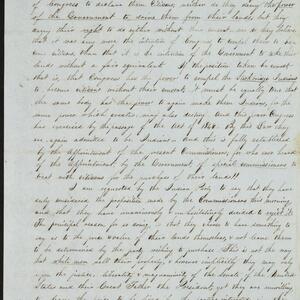 of Congress to declare them Citizens, neither do they deny the power
of the Government to drive them from their lands, but they
deny their right to do either without their consent nor do they believe
that it was ever the intention of Congress to compel them to be-
come citizens than that it is the intention of the Government to take their
lands without a fair equivalent. If the position taken be correct
that is, that Congress has the power to compel the Stockbridge Indians
to become citizens without their consent, it must be equally true that
the same body has the power to again make them Indians, for the
same power which creates, may also destroy and this power Congress
has exercised by the passage of the Act of 1846. By this Law they
are again admitted to be Indians and this is fully established
by the appointment of the present Commissioners, for who ever heard
of the appointment by the Government of special commissioners to
treat with citizens for the purchase of their lands?
I am requested by the Indian Party to say that they have
duly considered the proposition made by the Commissioners this morning
and that they have unanimously & unhesitatingly decided to reject it.
The principal reason for so doing, is that they choose to have something to
say as to the price or value of their lands themselves, & not leave them
to be determined by the party wishing to purchase. This is not the way
that white men sell their property, & however implicitly they may rely
upon the justice, liberality & magnanimity of the Senate of the United
States and their Great Father the President, yet they are unwilling